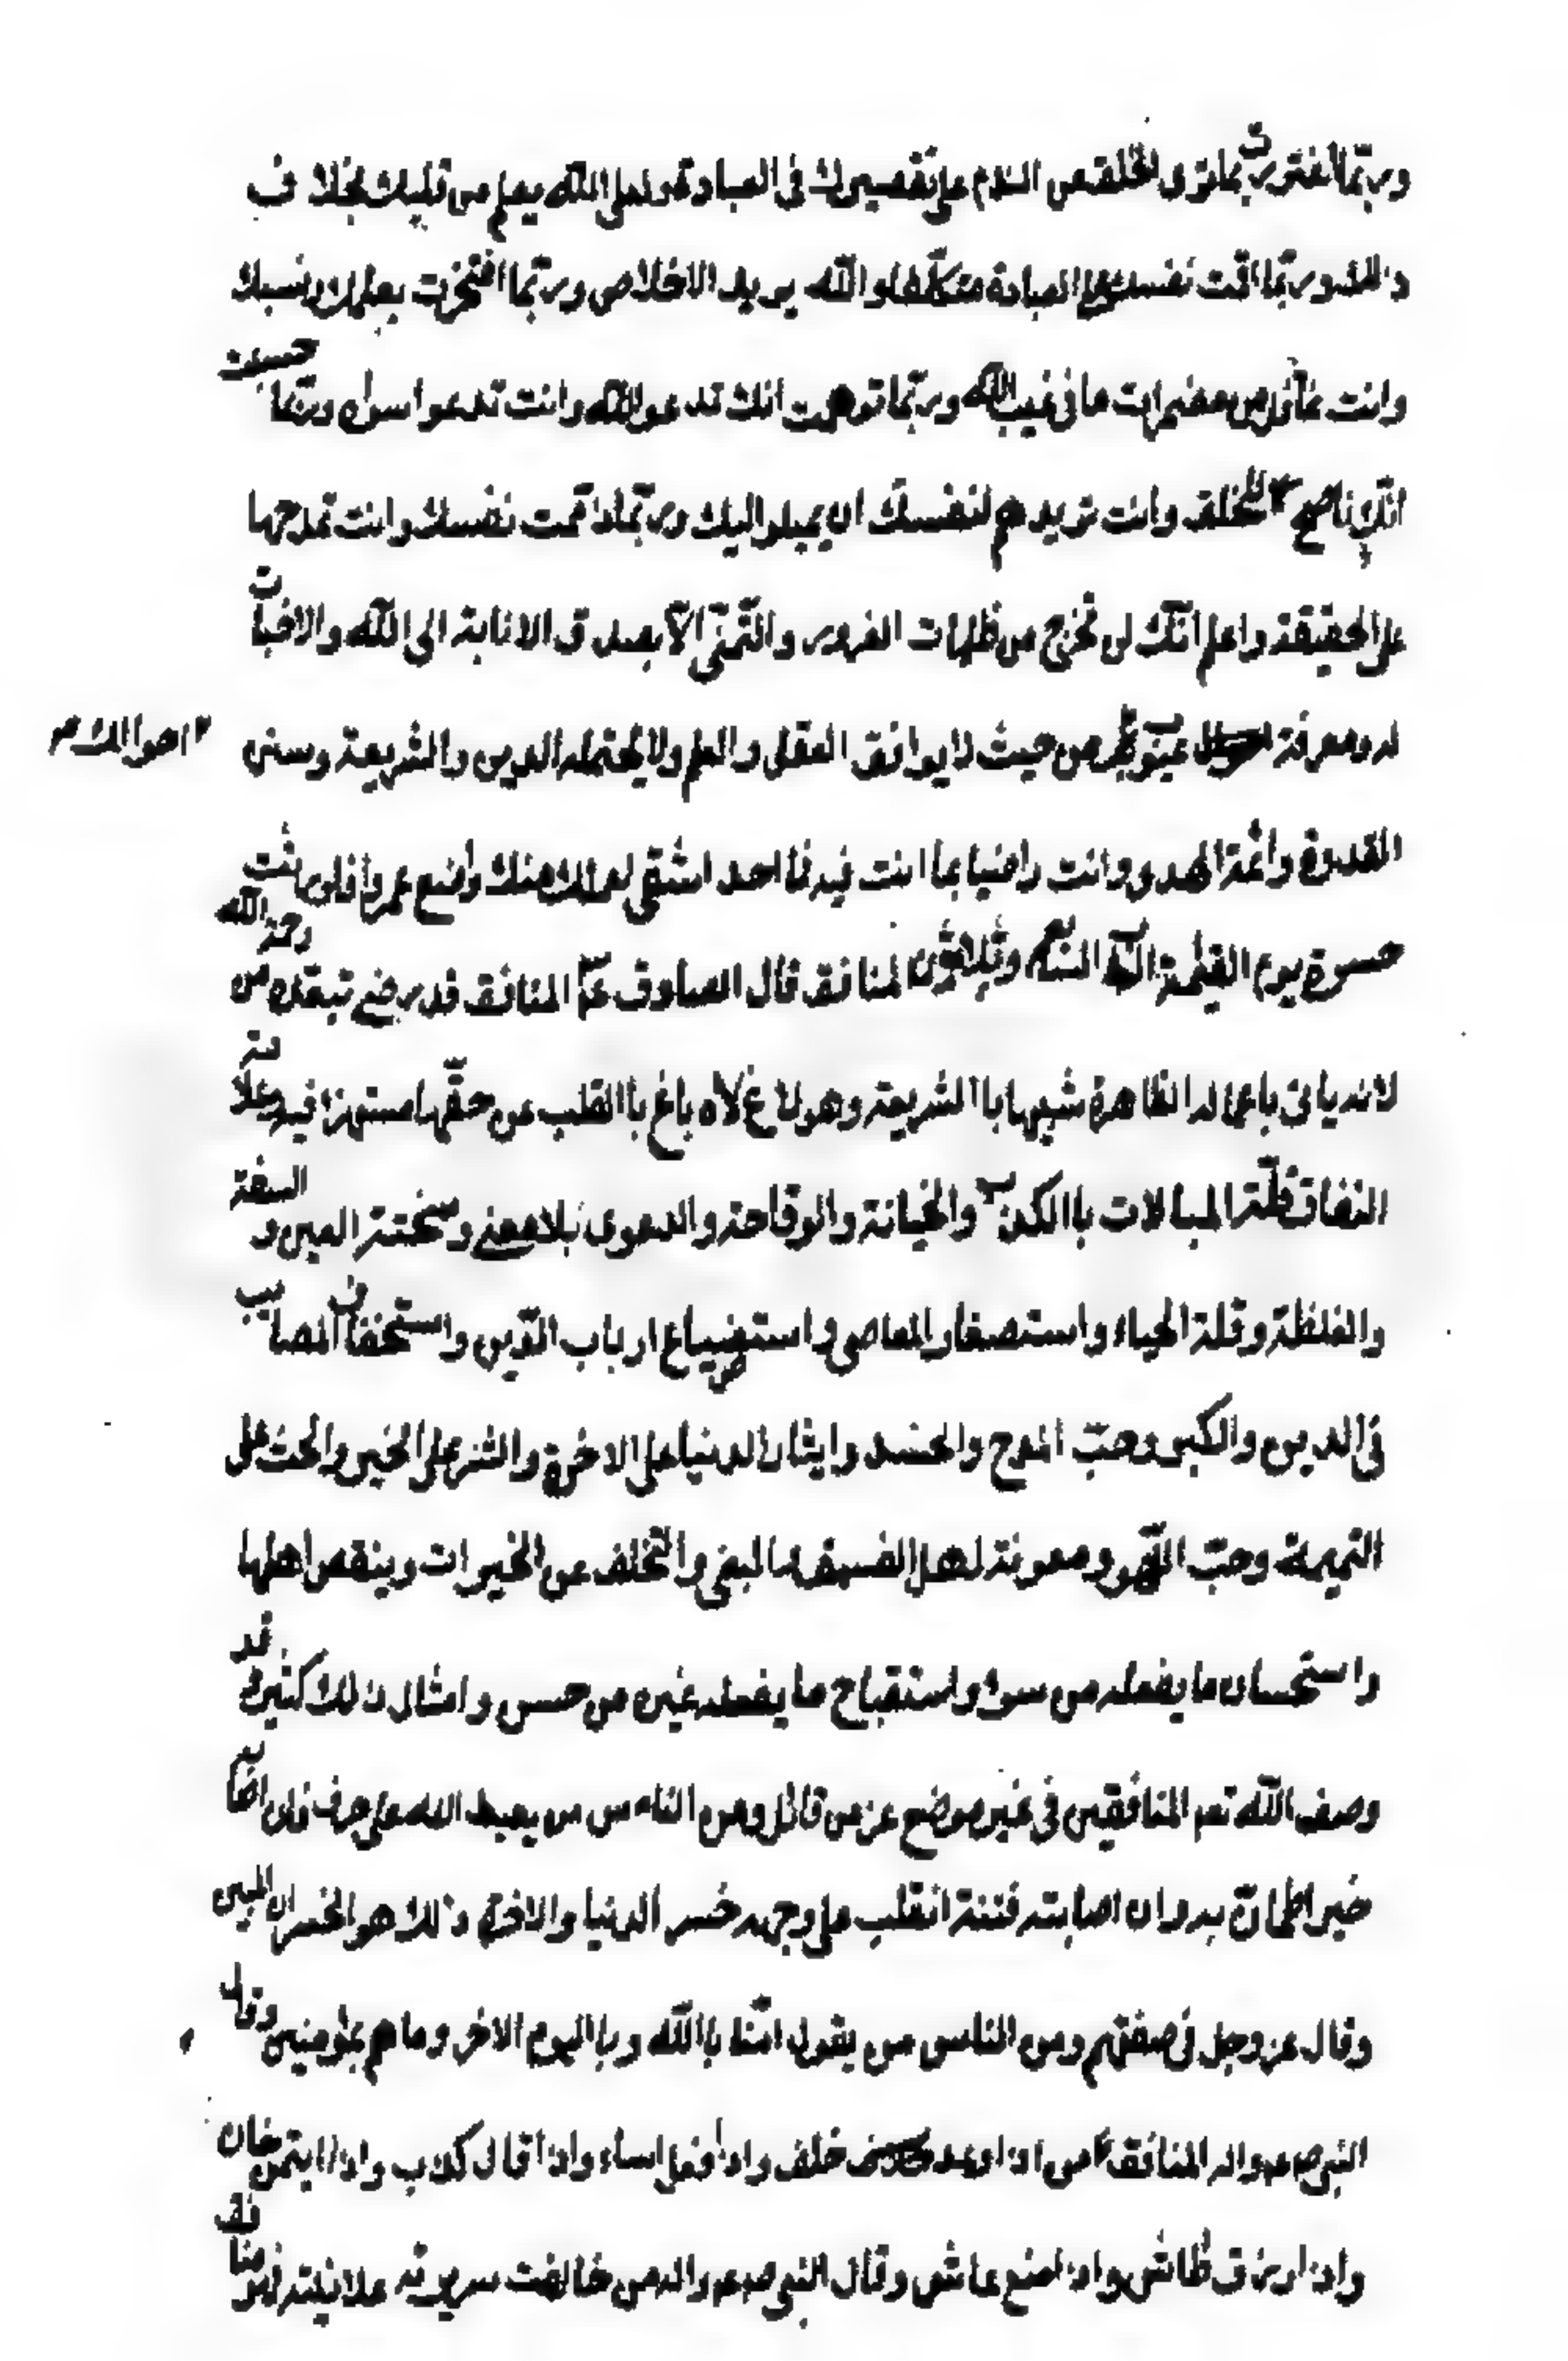 وربّما اغتررت بما ترى الخلق من الندم على تقصيرك فى العبادة ولعل الله يعلم من قلبك بخلاف
ذلك وربّما اقمت نفسك على العبادة متكلّفا والله يريد الاخلاص وربّما افتخرت بعلمك ونسبك
وانت غافل من مضمرات ما فى غيب الله وربّما توهمت انك تدعو الله وانت تدعوا سواه وربّما حسبت
انّك ناصح للخلق وانت تريدهم لنفسك ان يميلوا اليك وربّما ذممت نفسك وانت تمدحها
على الحقيقة واعلم انّك لن تخرج من ظلمات الغرور والتّمنّى الّا بصدق الانابة الى الله والاخبات
له ومعرفة عيوب من حيث لا يوافق العقل والعلم ولا يحتمله الدين والشريعة وسنن
احوالك
القدوة وائمّة الهدى وانت راضيا بما انت فيه فما احد اشقى لعملك منك واضيع عمرا فاورثت
حسرة يوم القيمة المنافق قال الصادق المنافق قد رضى ببعده من رحمة الله
لانه ياتى باعماله الظاهرة شبيها باالشريعة وهو لاغ لاه باغ باالقلب عن حقّها مستهزء فيه وعلامة
النفاق قلّة المبالات باالكذب والخيانة والوقاحة والدعوى بلا معنى وسخنة العين و السفه
والغلظة وقلة الحياء واستصغار المعاصى واستضياع ارباب الدّين واستخفاف المصايب
فى الدين والكبر وحبّ المدح والحسد وايثار الدنيا على الاخرة والشر على الخير والحث على
النميمة وحبّ اللّهو ومعونة لهل الفسق والبغى والتخلف عن الخيرات وينقص اهلها
واستحسان ما يفعله من سوء واستقباح ما يفعله غيره من حسن وامثال ذلك كثيرة قد
وصف الله تعم المنافقين فى غير موضع عز من قائل ومن الناس من يعبد الله على حرف فان اصابه
خير اطمان به وان اصابته فتنة انقلب على وجهه خسر الدنيا والاخرة ذلك هو الخسران المبين
وقال عز وجل فى صفتهم ومن الناس من يقول امّنا باالله وباليوم الاخر وما هم بمؤمنين وقال
النبى صعم واله المنافق من اذا وعد خلف واذا فعل اساء واذا قال كذب واذا ايتمن خان
واذا رزق طاش واذا منع عاش وقال النبى صعم واله من خالفت سريرته علانيته فهو منافق